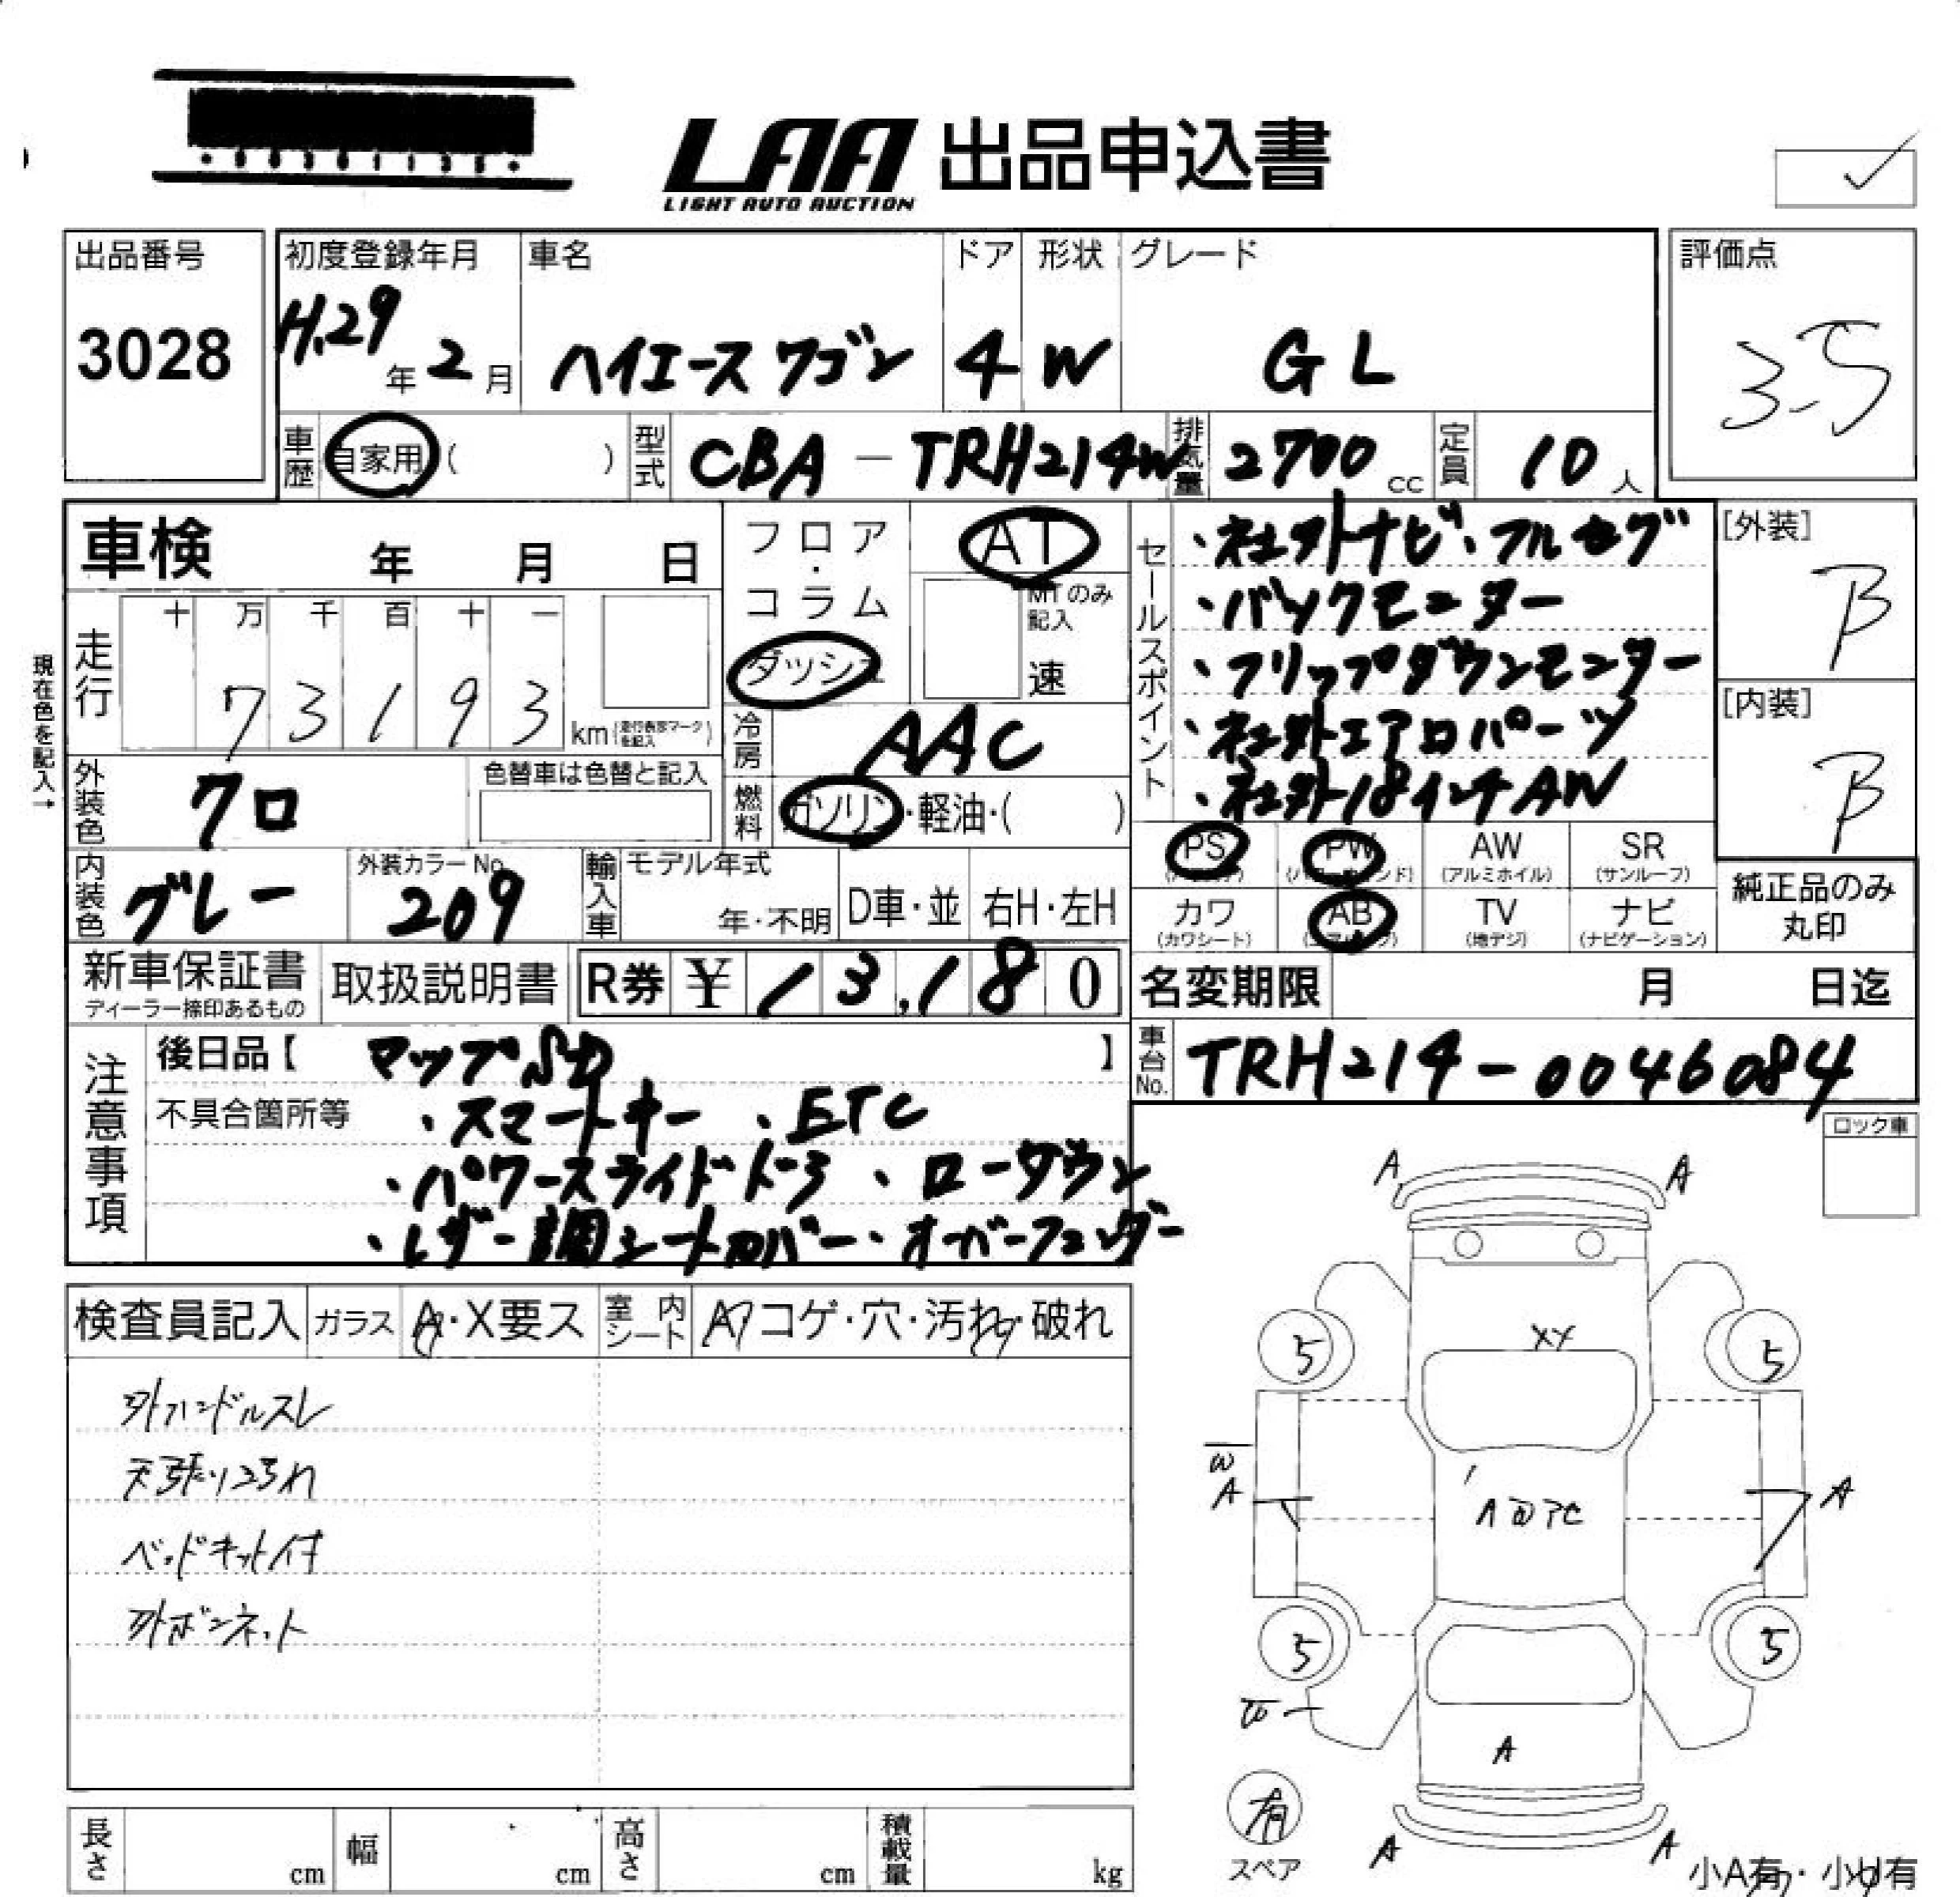 LAA 出品申込書
LIGHT AUTO AUCTION
出品番号
3028
初度登録年月
H.29年2月
車名
ハイエースワゴン
ドア
4
形状
W
グレード
GL
評価点
3.5
車歴
自家用( )
型式
CBA-TRH214W
排気量
2700cc
定員
10人
車検 年 月 日
フロア・コラム
ダッシュ
AT
MTのみ記入
速
セールスポイント
・社外ナビ、フルセグ
・バックモニター
・フリップダウンモニター
・社外エアロパーツ
・社外18インチAW
[外装]
B
[内装]
B
現在色を記入→
走行
十 万 千 百 十 一
7 3 1 9 3 km
冷房
AAC
燃料
ガソリン・軽油・( )
外装色
クロ
色替車は色替と記入
内装色
グレー
外装カラーNo.
209
輸入車
モデル年式
年・不明
D車・並
右H・左H
PS
PW
AW
(アルミホイル)
SR
(サンルーフ)
カワ
(カワシート)
AB
TV
(地デジ)
ナビ
(ナビゲーション)
純正品のみ
丸印
新車保証書
ディーラー捺印あるもの
取扱説明書
R券 ¥ 13,180
名変期限 月 日迄
車台No.
TRH214-0046084
注意事項
後日品【 マップSD 】
不具合箇所等
・スマートキー、ETC
・パワースライドドア、ローダウン
・レザー調シートカバー・オーバーフェンダー
ロック車
検査員記入
ガラス
A・X要ス
室内シート
A コゲ・穴・汚れ・破れ
外ハンドルスレ
天張りヨゴレ
ベッドキット付
外ボンネット
A A
XX
5 5
W
A
A
5 5
A
A A
有
スペア
小A有・小U有
長さ cm
幅 cm
高さ cm
積載量 kg